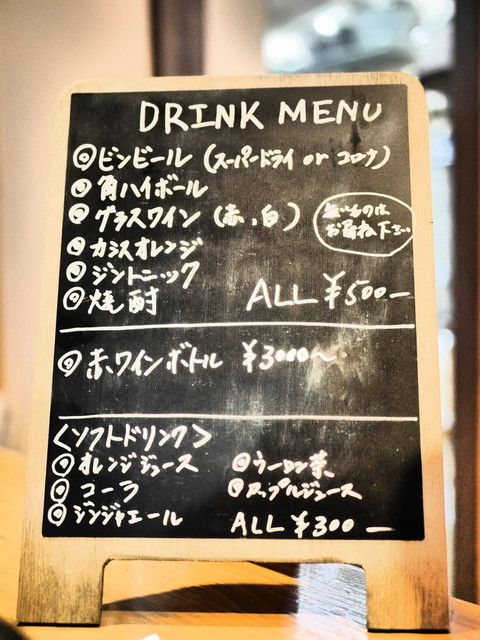 DRINK MENU
◎ビンビール (スーパードライ or コロナ)
◎角ハイボール
◎グラスワイン (赤、白)
無いものは
お尋ね下さい
◎カシスオレンジ
◎ジントニック
◎焼酎 ALL ¥500—
◎赤ワインボトル ¥3000〜
〈ソフトドリンク〉
◎オレンジジュース ◎ウーロン茶
◎コーラ ◎アップルジュース
◎ジンジャエール ALL ¥300—